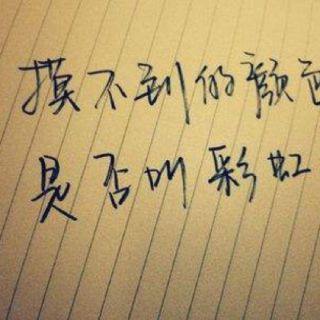 摸不到的颜色
是否叫彩虹